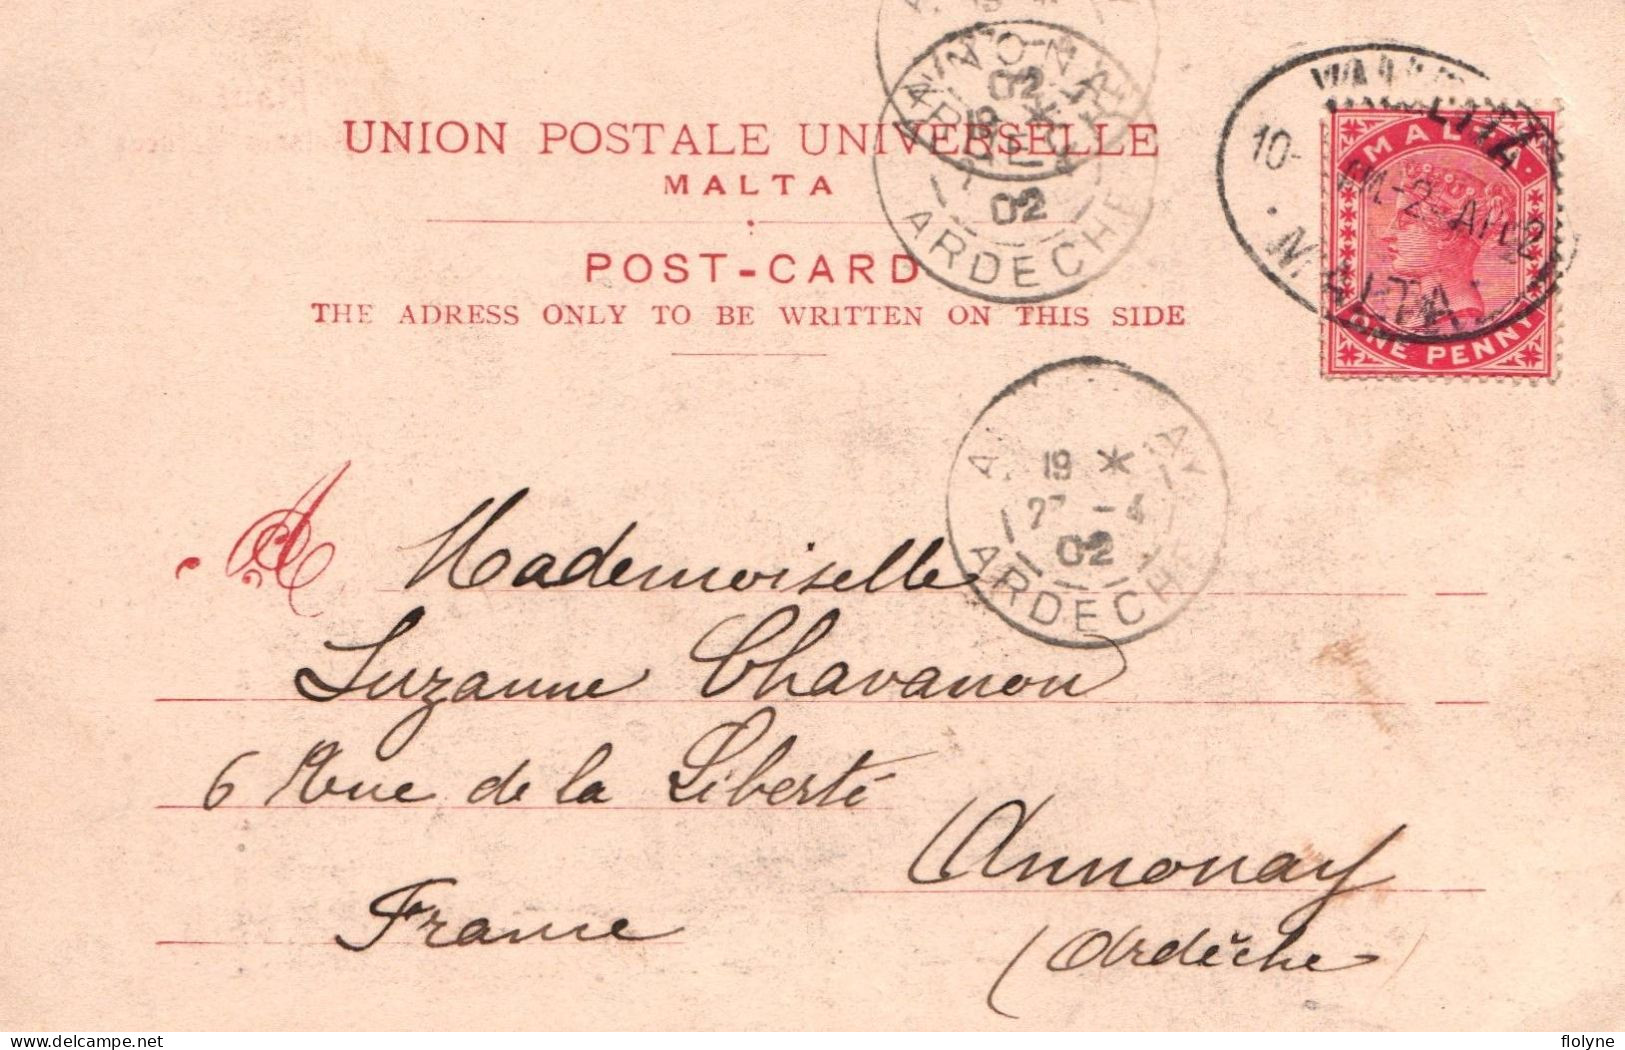 UNION POSTALE UNIVERSELLE
MALTA
POST-CARD
THE ADRESS ONLY TO BE WRITTEN ON THIS SIDE
ANNONAY
02
19 *
02
ARDECHE
VALLETTA
10-
MALTA
MALTA
ONE PENNY
19 *
-4
02
ARDECHE
A Mademoiselle
Suzanne Chavanon
6 Rue de la Liberté
Annonay
France
(Ardèche
delcampe.net
flolyne